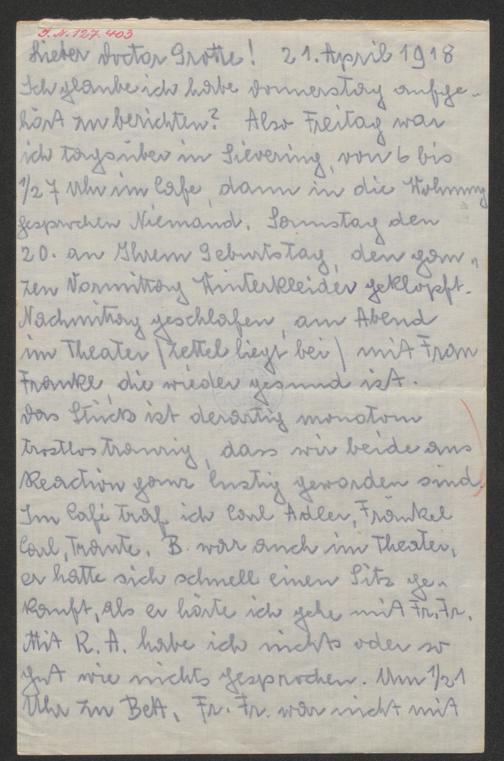 J.N. 127.403
Lieber Doctor Grotte! 21. April 1918
Ich glaube ich habe Donnerstag aufge-
hört zu berichten? Also Freitag war
ich tagsüber in Sievering, von 6 bis
1/27 Uhr im Cafe, dann in die Wohnung
gesprochen Niemand. Samstag den
20. an Ihrem Geburtstag, den gan-
zen Vormittag Winterkleider geklopft.
Nachmittag geschlafen, am Abend
im Theater (Zettel liegt bei) mit Frau
Fränkl die wieder gesund ist.
Das Stück ist derartig monoton
trostlos traurig, dass wir beide aus
Reaction ganz lustig geworden sind.
Im Café traf ich Carl Adler, Fränkel
Carl, B. war auch im Theater,
er hatte sich schnell einen Sitz ge-
kauft, als er hörte ich gehe mit Fr. Fr.
Mit R. A. habe ich nichts oder so
gut wie nichts gesprochen. Um 1/21
Uhr zu Bett, Fr. Fr. war nicht mit